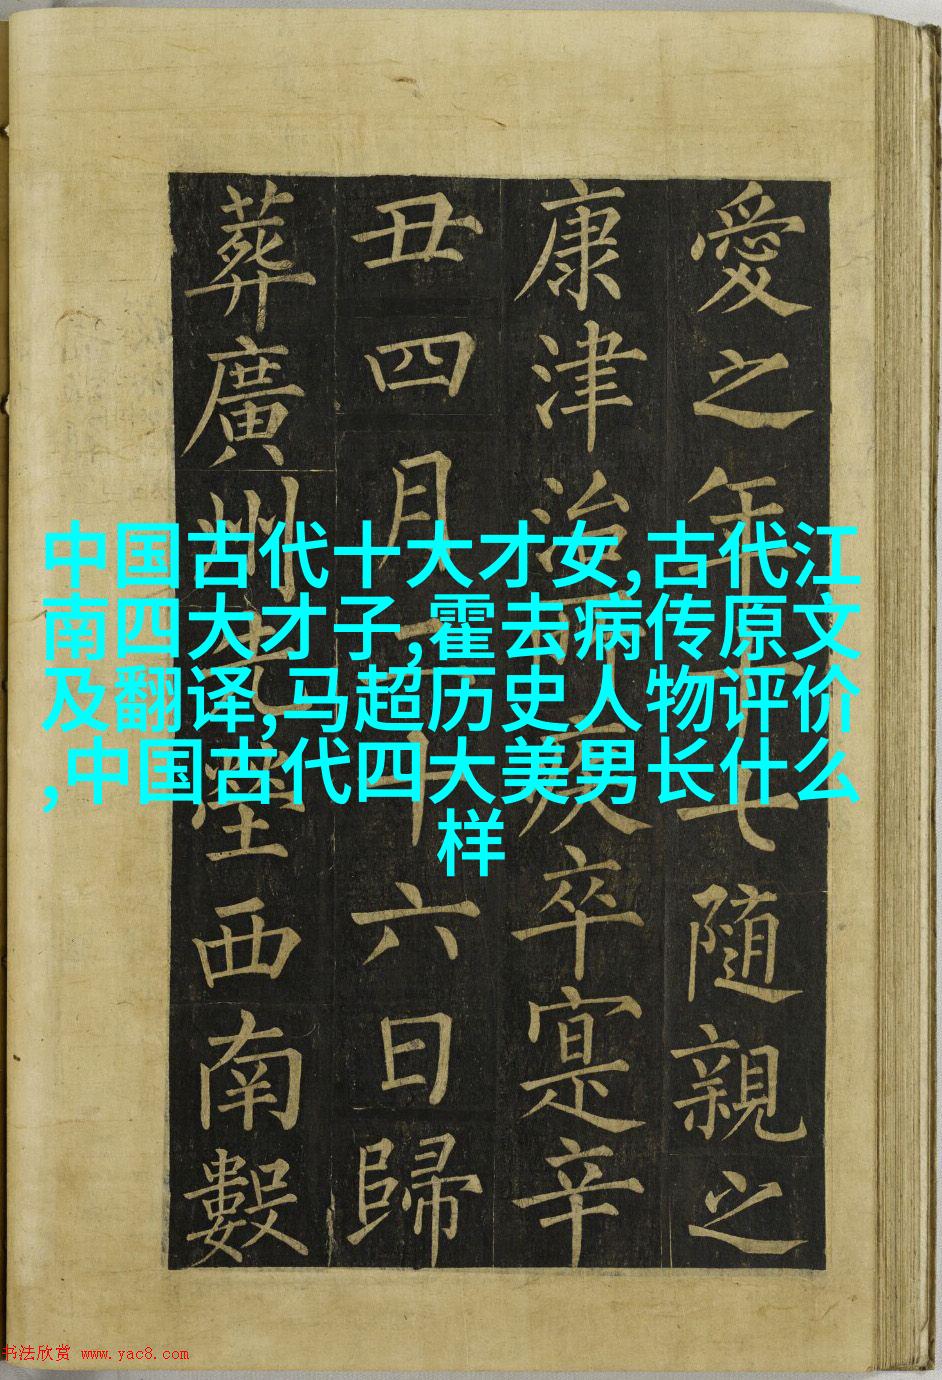 愛之年十七隨親之
康津治所疾卒寔辛
丑四月十六日歸
葬廣州先塋西南數
中国古代十大才女,古代江
南四大才子,霍去病传原文
及翻译,马超历史人物评价
,中国古代四大美男长什么
样
书法欣赏 www.yac8.com